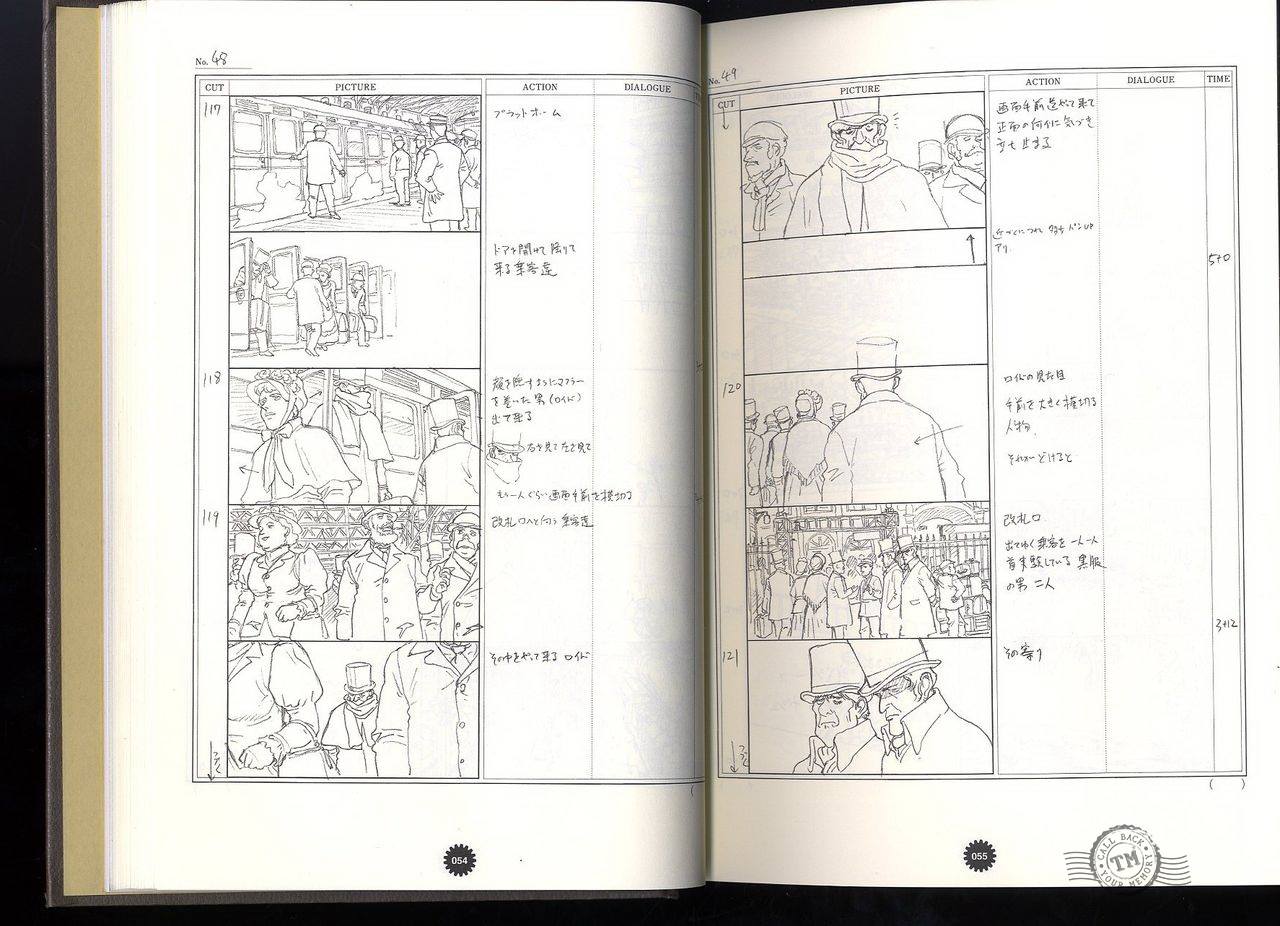 No. 48
CUT PICTURE ACTION DIALOGUE
117
プラットホーム
ドアを開けて降りて
来る乗客達
118
顔を隠すようにマフラー
を巻いた男(ロイド)
出て来る
右を見て左を見て
もう一人ぐらい画面手前を横切る
119
改札口へと向う乗客達
その中をやって来るロイド
つづく
054
No. 49
CUT PICTURE ACTION DIALOGUE TIME
画面手前迄やって来て
正面の何かに気づき
立ち止まる
近づくにつれ PAN UP
アリ
5+0
120
ロイドの見た目
手前を大きく横切る
人物
それがどけると
改札口
出てゆく乗客を一人一人
首実験している黒服
の男 二人
3+12
121
その寄り
つづく
( )
055
CALL BACK
TM
YOUR MEMORY